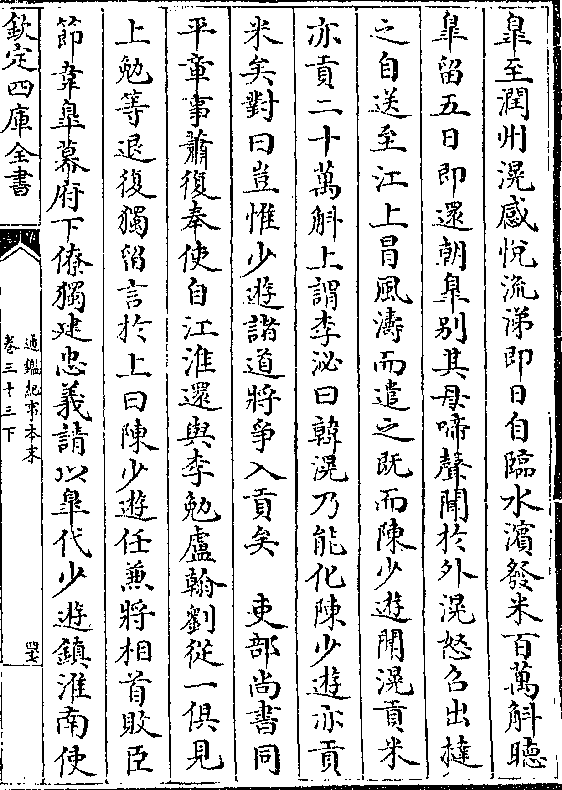 臯至潤州滉感悅流涕即日自臨水濱發米百萬斛聽
臯留五日即還朝臯别其母啼聲聞於外滉怒召出撻
之自送至江上冒風濤而遣之既而陳少遊聞滉貢米
亦貢二十萬斛上謂李泌曰韓滉乃能化陳少遊亦貢
米矣對曰豈惟少遊諸道將爭入貢矣　吏部尚書同
平章事蕭復奉使自江淮還與李勉盧翰劉從一俱見
上勉等退復獨留言於上曰陳少遊任兼將相首敗臣
節韋臯幕府下僚獨建忠義請以臯代少遊鎮淮南使
欽定四庫全書
通鑑紀事本末
卷三十三下